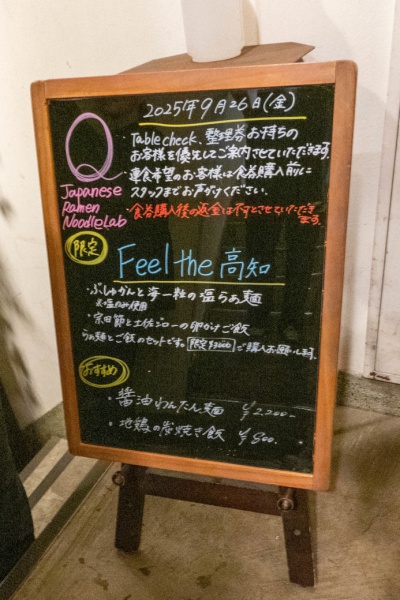 2025年9月26日(金)
Q
Japanese
Ramen
Noodle Lab
・Tablecheck、整理券お持ちの
お客様を優先してご案内させていただきます。
・連食希望のお客様は食券購入前に
スタッフまでお声がけください。
・食券購入後の返金は不可とさせていただき
ます。
限定
Feel the 高知
・ぶしゅかんと海一粒の塩らぁ麺
・宗田節と土佐ジローの卵かけご飯
らぁ麺とご飯のセットです。限定¥3000 ご購入お願いします。
おすすめ
・醤油わんたん麺 ¥2,200-
・地鶏の炭焼き飯 ¥800.